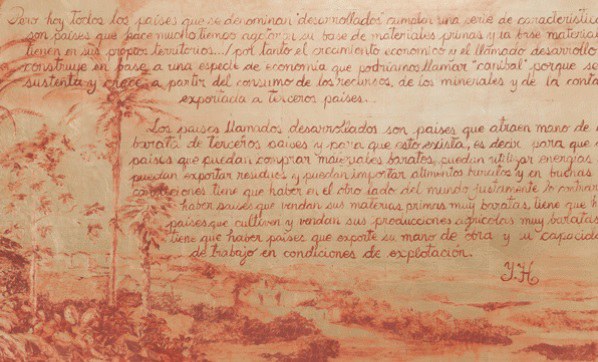 Pero hoy todos los países que se denominan "desarrollados" cumplen una serie de característica
son países que hace mucho tiempo agotaron su base de materiales primas y la base material
tienen en sus propios territorios... por tanto el crecimiento economico y el llamado desarrollo
construye en base a una especie de economía que podríamos llamar "canibal" porque se
sustenta y crece a partir del consumo de los recursos, de los minerales y de la conta
exportada a terceros países...
Los países llamados desarrollados son países que atraen mano de
barata de terceros países y para que esto exista, es decir para que
países que puedan comprar materiales baratos, puedan utilizar energías
puedan exportar residuos y puedan importar alimentos baratos y en buenas
condiciones tiene que haber en el otro lado del mundo justamente lo contrari
haber países que vendan sus materias primas muy baratas, tiene que h
países que cultiven y vendan sus producciones agrícolas muy baratas
tiene que haber países que exporte su mano de obra y su capacida
de trabajo en condiciones de explotación.
Y.H